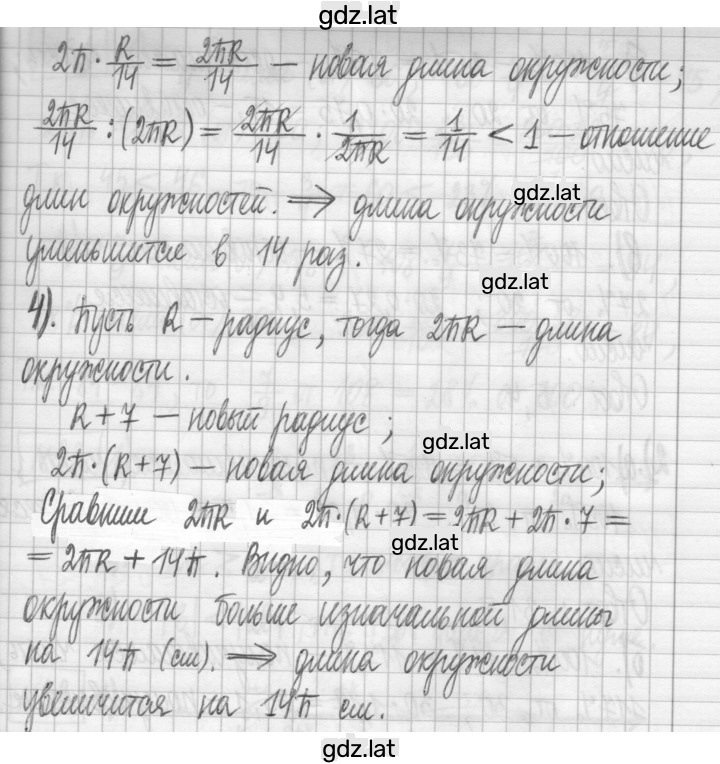 gdz.lat
2π · R/14 = 2πR/14 — новая длина окружности;
2πR/14 : (2πR) = 2πR/14 · 1/2πR = 1/14 < 1 — отношение
gdz.lat
длин окружностей. ⟹ длина окружности
уменьшится в 14 раз.
gdz.lat
4). Пусть R — радиус, тогда 2πR — длина
окружности.
R + 7 — новый радиус;
gdz.lat
2π·(R+7) — новая длина окружности;
Сравним 2πR и 2π·(R+7) = 2πR + 2π·7 =
gdz.lat
= 2πR + 14π. Видно, что новая длина
окружности больше изначальной длины
на 14π (см). ⟹ длина окружности
увеличится на 14π см.
gdz.lat